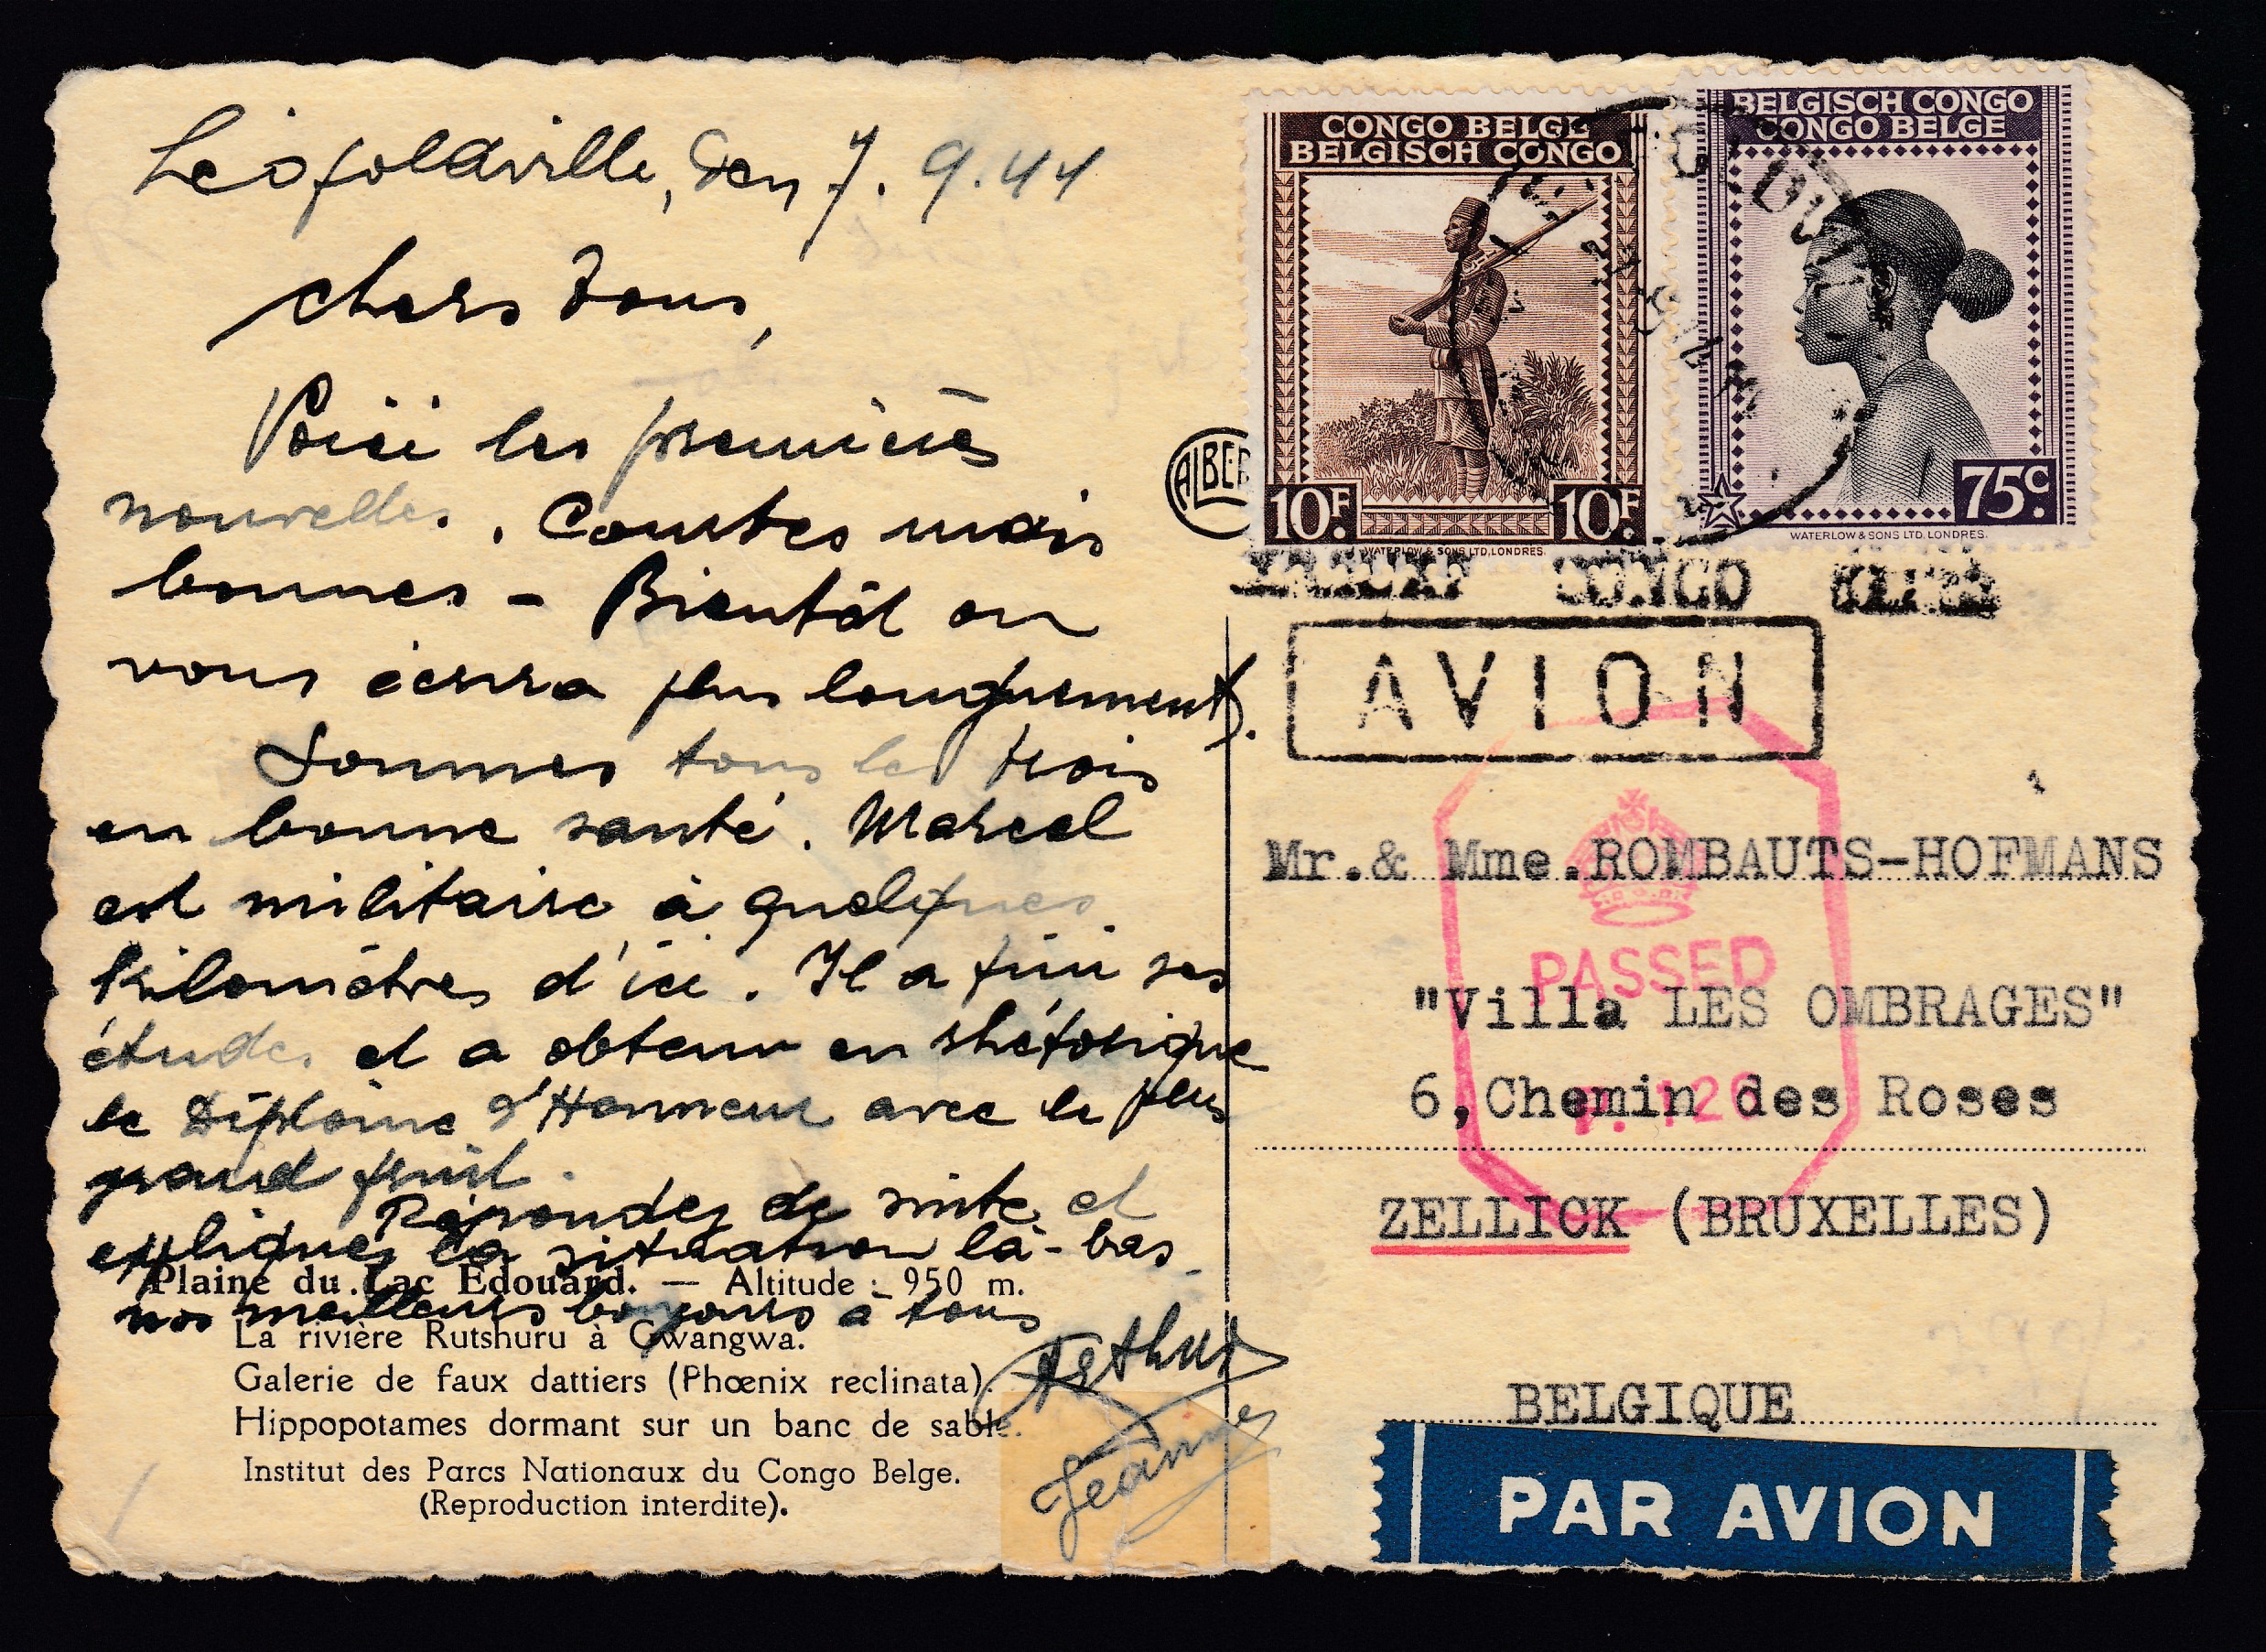 Léopoldville, den 7.9.44
Chers tous,
Voici les premières
nouvelles. Courtes mais
bonnes - Bientôt on
vous écrira plus longuement.
Sommes tous les trois
en bonne santé. Marcel
est militaire à quelques
kilomètres d'ici. Il a fini ses
études et a obtenu en rhétorique
le Diplôme d'Honneur avec le plus
grand fruit.
Répondez de suite et
expliquez la situation là-bas
nos meilleurs bonjours à tous
Arthur
Jeanne
Plaine du Lac Edouard. — Altitude : 950 m.
La rivière Rutshuru à Gwangwa.
Galerie de faux dattiers (Phœnix reclinata).
Hippopotames dormant sur un banc de sable.
Institut des Parcs Nationaux du Congo Belge.
(Reproduction interdite).
CONGO BELGE
BELGISCH CONGO
10F. 10F.
WATERLOW & SONS LTD, LONDRES.
BELGISCH CONGO
CONGO BELGE
75c.
WATERLOW & SONS LTD. LONDRES.
CONGO
AVION
PASSED
Mr.& Mme.ROMBAUTS-HOFMANS
"Villa LES OMBRAGES"
6,Chemin des Roses
ZELLICK (BRUXELLES)
BELGIQUE
PAR AVION